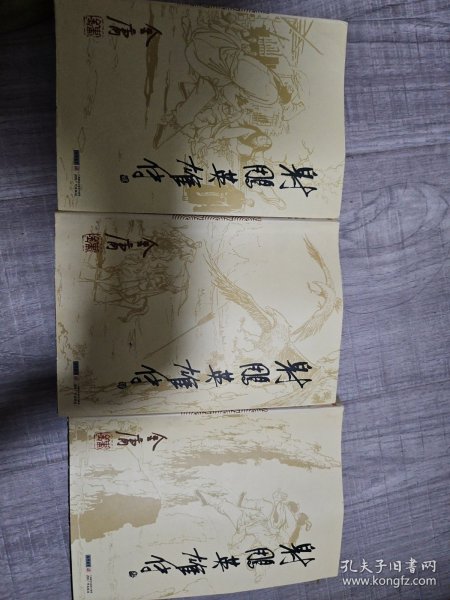 金庸
射鵰英雄传
金庸
射鵰英雄传
金庸
射鵰英雄传
孔夫子旧书网
www.kongfz.com